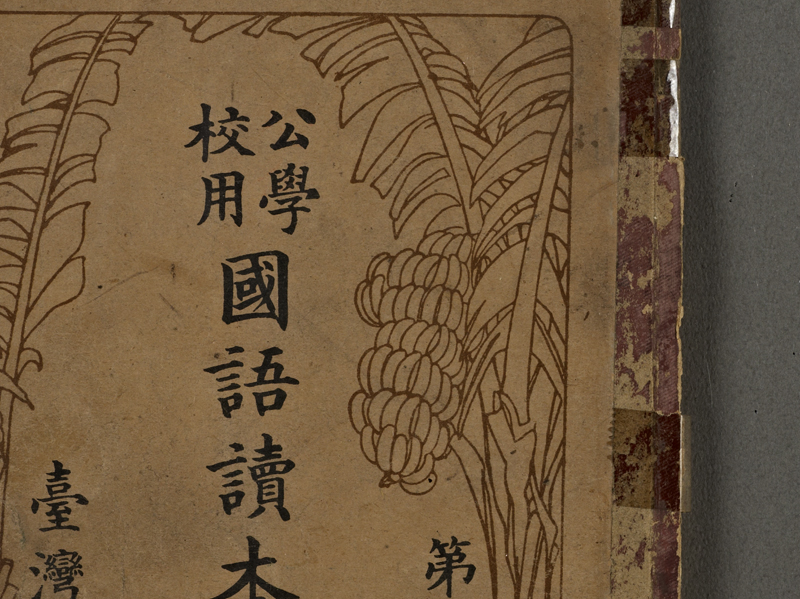 第
公學
校用
國語讀本
臺灣